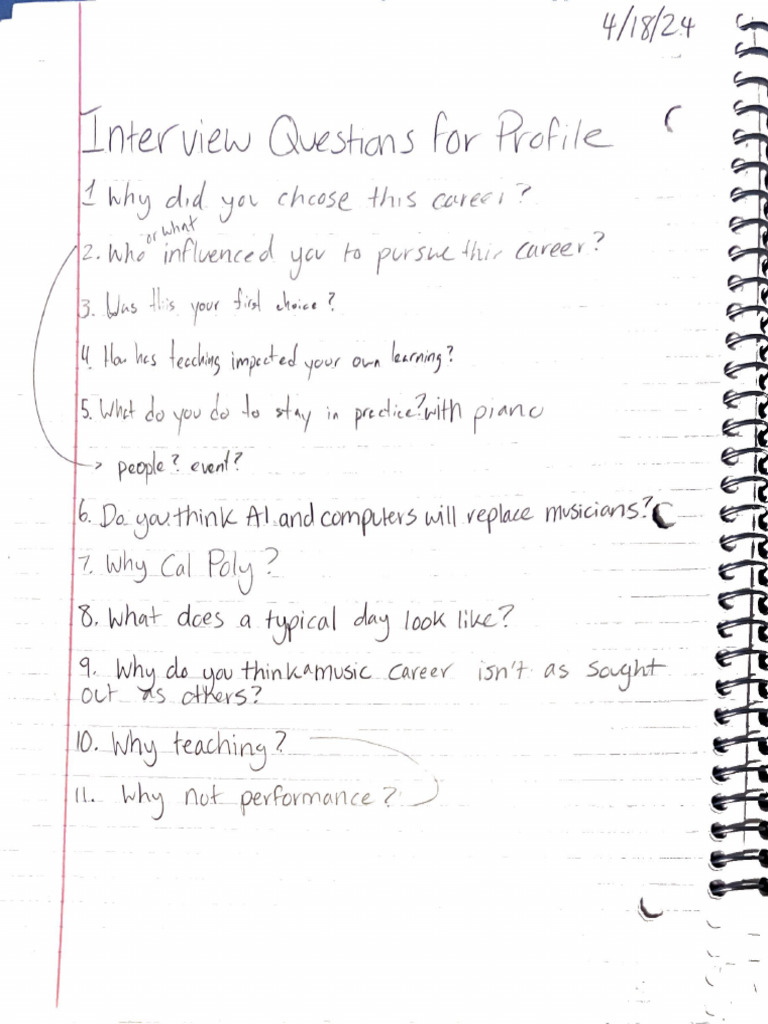 4/18/24
Interview Questions for Profile
1 Why did you choose this career?
or what
2. Who influenced you to pursue this career?
3. Was this your first choice?
4. How has teaching impacted your own learning?
5. What do you do to stay in practice? with piano
→ people? event?
6. Do you think AI and computers will replace musicians?
7. Why Cal Poly?
8. What does a typical day look like?
9. Why do you think a music career isn't as sought
out as others?
10. Why teaching?
11. Why not performance?